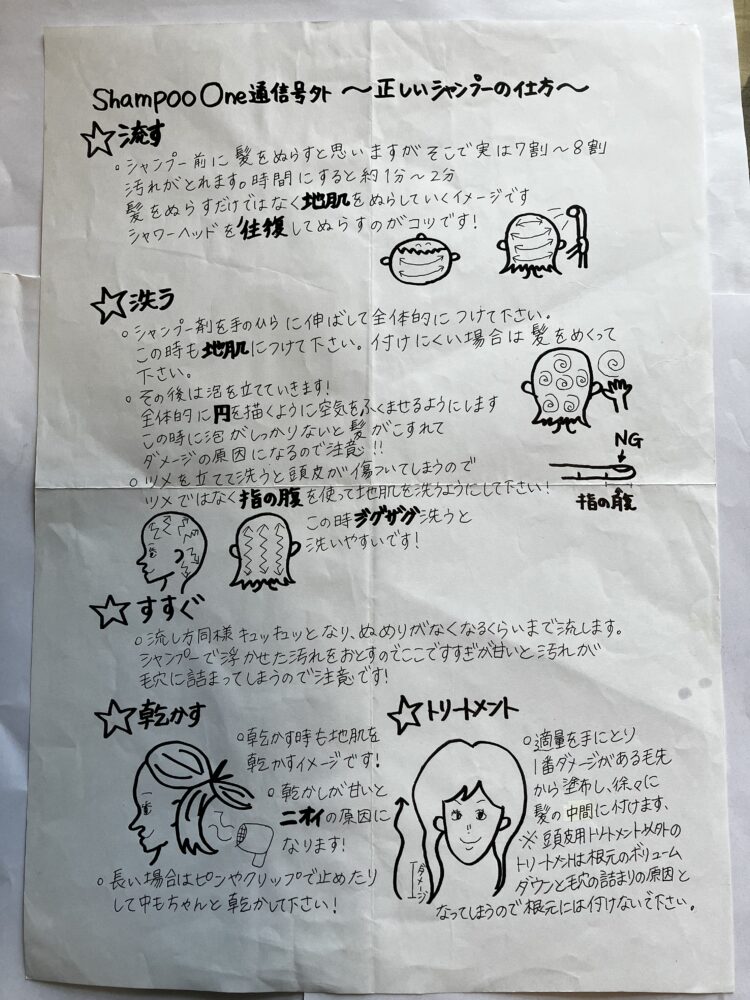 Shampoo One通信号外 〜正しいシャンプーの仕方〜
☆流す
○シャンプー前に髪をぬらすと思いますがそこで実は7割〜8割
汚れがとれます。時間にすると約1分〜2分
髪をぬらすだけではなく地肌をぬらしていくイメージです
シャワーヘッドを往復してぬらすのがコツです!
☆洗う
○シャンプー剤を手のひらに伸ばして全体的につけて下さい。
この時も地肌につけて下さい。付けにくい場合は髪をめくって
下さい。
○その後は泡を立てていきます!
全体的に円を描くように空気をふくませるようにします
この時に泡がしっかりないと髪がこすれて
ダメージの原因になるので注意!!
○ツメを立てて洗うと頭皮が傷ついてしまうので
ツメではなく指の腹を使って地肌を洗うようにして下さい!
NG
指の腹
この時ジグザグ洗うと
洗いやすいです!
☆すすぐ
○流し方同様キュッキュッとなり、ぬめりがなくなるくらいまで流します。
シャンプーで浮かせた汚れをおとすのでここですすぎが甘いと汚れが
毛穴に詰まってしまうので注意です!
☆乾かす
○乾かす時も地肌を
乾かすイメージです!
○乾かしが甘いと
ニオイの原因に
なります!
○長い場合はピンやクリップで止めたり
して中もちゃんと乾かして下さい!
☆トリートメント
○適量を手にとり
1番ダメージがある毛先
から塗布し、徐々に
髪の中間に付けます、
※頭皮用トリートメント以外の
トリートメントは根元のボリューム
ダウンと毛穴の詰まりの原因と
なってしまうので根元には付けないで下さい。
ダメージ